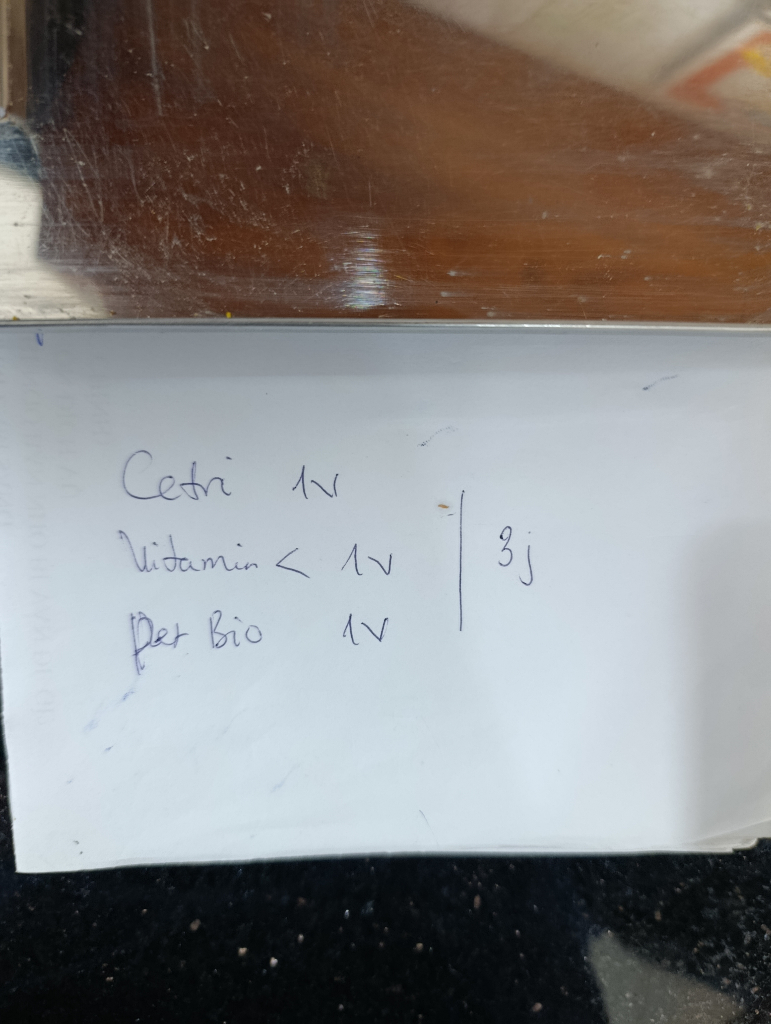 Cetri 1v
Vitamin C 1v
Per Bio 1v
3j